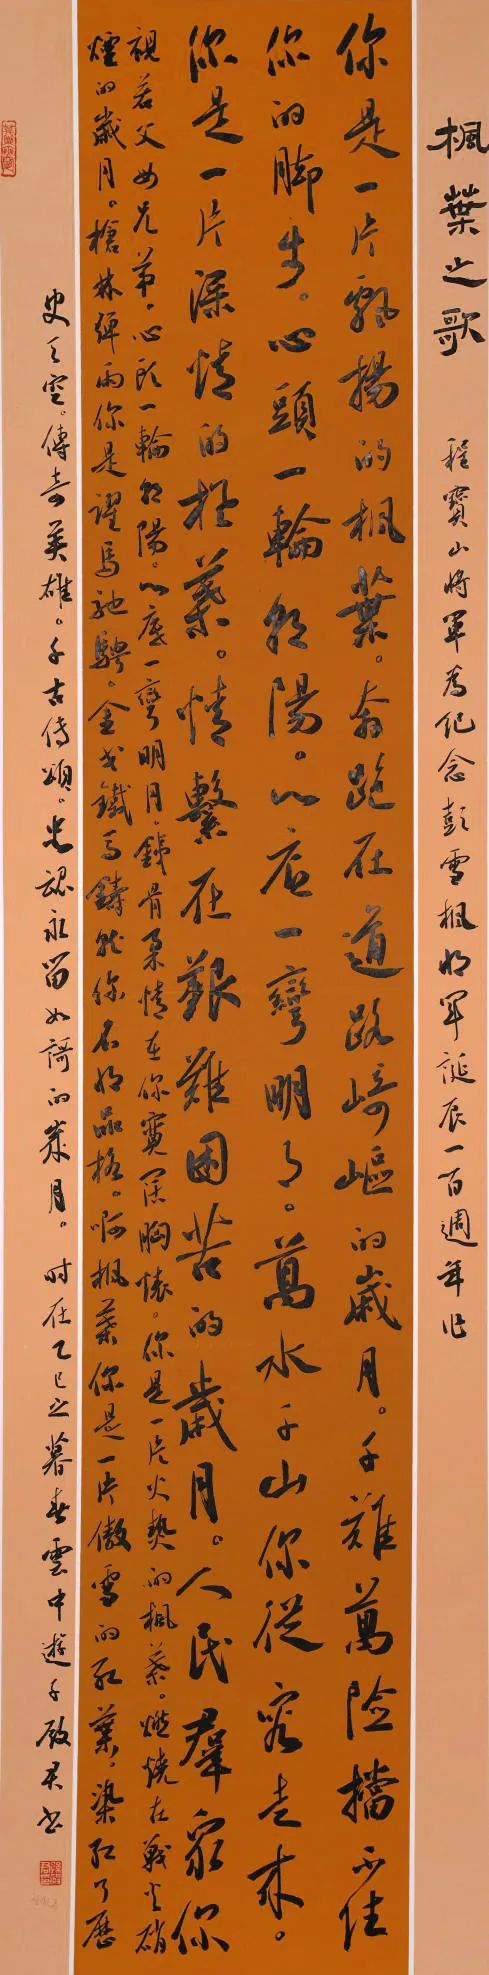 楓葉之歌
程寶山將軍為紀念彭雪楓將軍誕辰一百週年作
你是一片飄揚的楓葉。奔跑在道路崎嶇的歲月。千難萬險擋不住
你的脚步。心頭一輪朝陽。心底一彎明月。萬水千山你從容走來。
你是一片深情的楓葉。情繫在艱難困苦的歲月。人民群衆你
視若父母兄弟。心頭一輪朝陽。心底一彎明月。鐵骨柔情在你寬闊胸懷。你是一片火熱的楓葉。燃燒在戰火硝
煙的歲月。槍林彈雨你是躍馬馳騁。金戈鐵馬鑄就你名將品格。啊楓葉你是一片傲雪的紅葉。染紅了歷
史天空。傳奇英雄。千古傳頌。忠魂永留如歌的歲月。时在乙巳之暮春雲中遊子啟君书